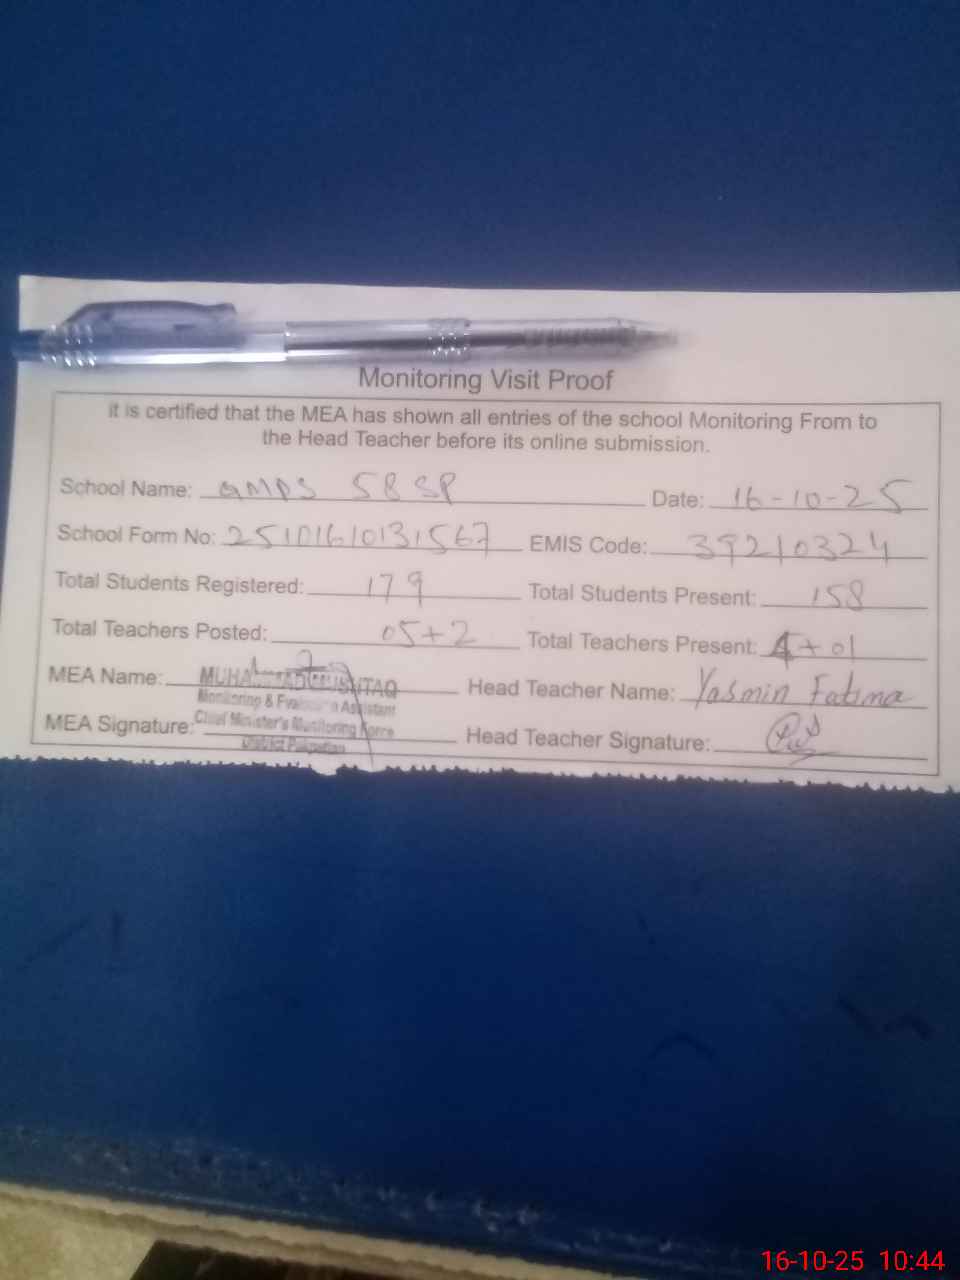 Monitoring Visit Proof
it is certified that the MEA has shown all entries of the school Monitoring From to
the Head Teacher before its online submission.
School Name: GMPS 58 SP Date: 16-10-25
School Form No: 25101610131567 EMIS Code: 39210324
Total Students Registered: 179 Total Students Present: 158
Total Teachers Posted: 05+2 Total Teachers Present: 4+01
MEA Name: MUHAMMAD MUSHTAQ Head Teacher Name: Yasmin Fatima
Monitoring & Evaluation Assistant
Chief Minister's Monitoring Force
MEA Signature: Head Teacher Signature:
District Pakpattan
16-10-25 10:44